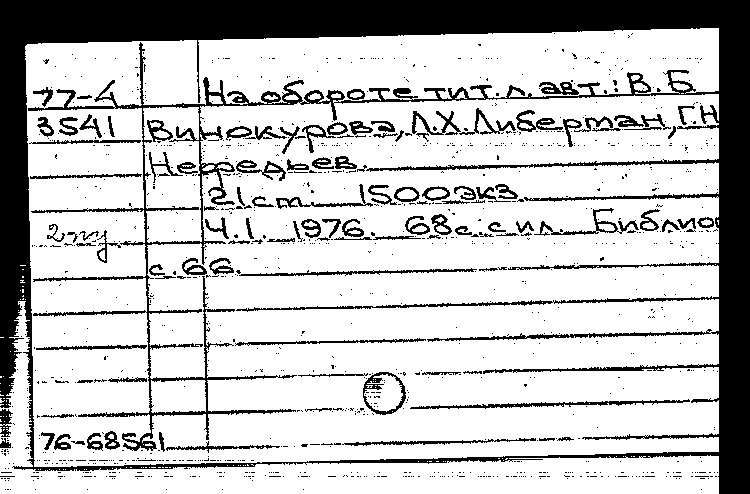 77-4 На обороте тит.л. авт.: В.Б
3541 Винокурова, Л.Х.Либерман, Г.Н
Нефедьев.
21см. 1500экз.
Ч.1. 1976. 68с. с ил. Библиог
с.66.
76-68561